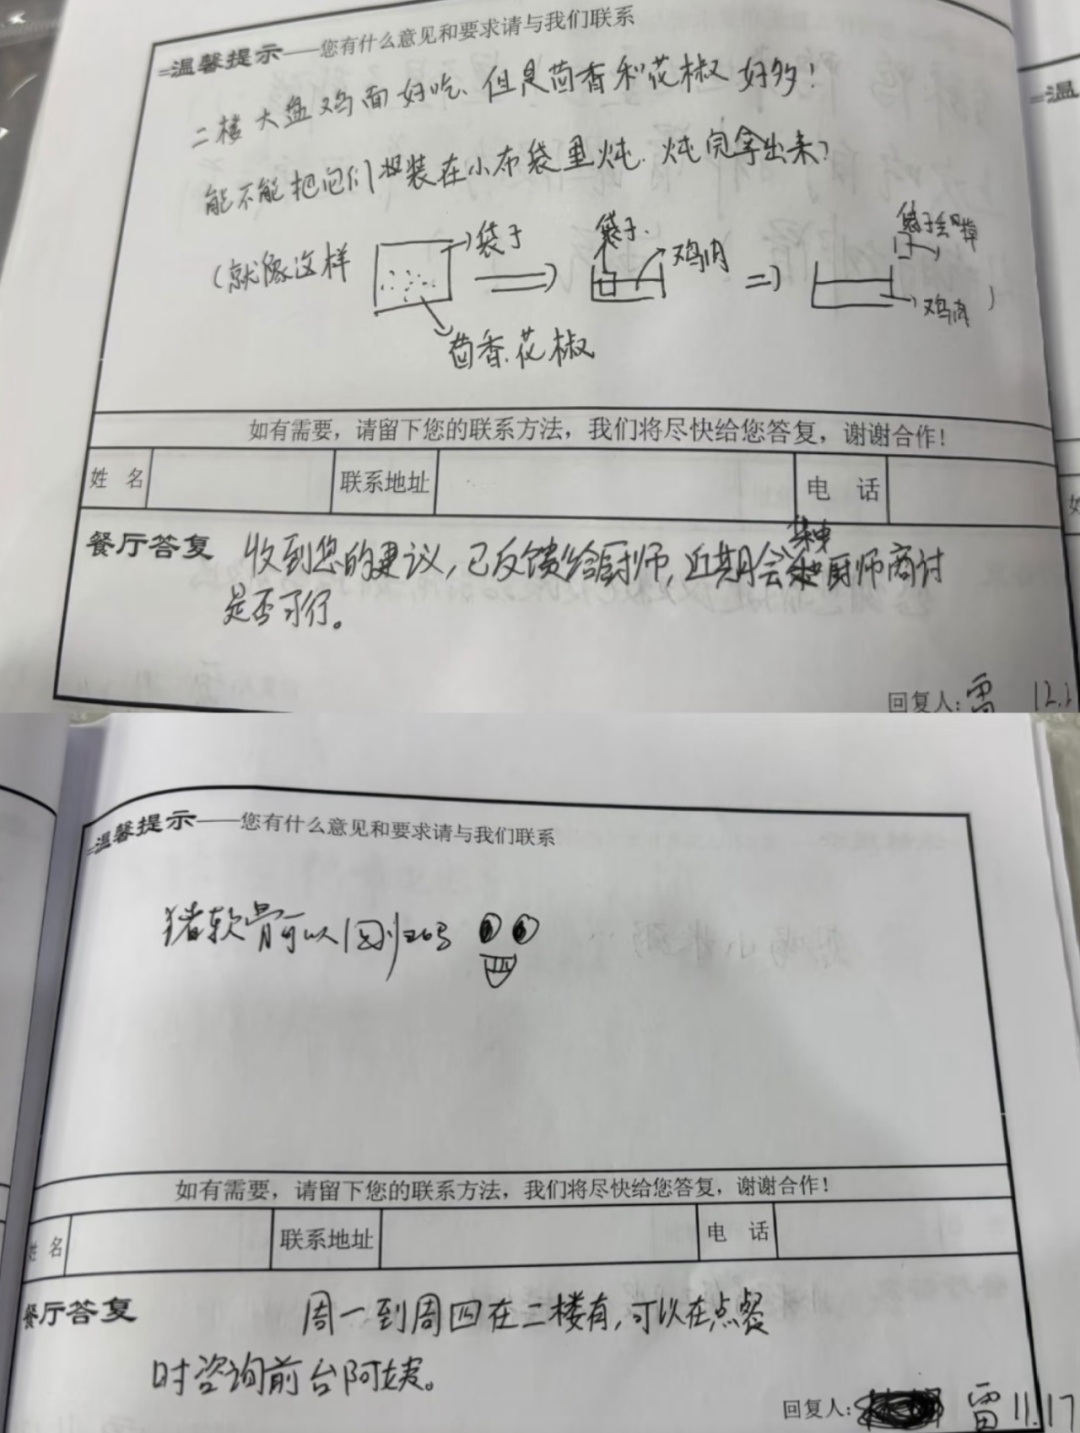 温馨提示——您有什么意见和要求请与我们联系
二楼大盘鸡面好吃、但是茴香和花椒好多！
能不能把它们装在小布袋里炖.炖完拿出来？
（就像这样
袋子
茴香.花椒
袋子.
鸡肉
袋子
鸡肉
）
如有需要，请留下您的联系方法，我们将尽快给您答复，谢谢合作！
姓 名 联系地址 电 话
餐厅答复 收到您的建议，已反馈给厨师，近期会集中和厨师商讨
是否可行。
回复人：雷 12.
温
温馨提示——您有什么意见和要求请与我们联系
猪软骨可以回归吗
如有需要，请留下您的联系方法，我们将尽快给您答复，谢谢合作！
姓 名 联系地址 电 话
餐厅答复 周一到周四在二楼有，可以在点餐
时咨询前台阿姨。
回复人： 雷 11.17